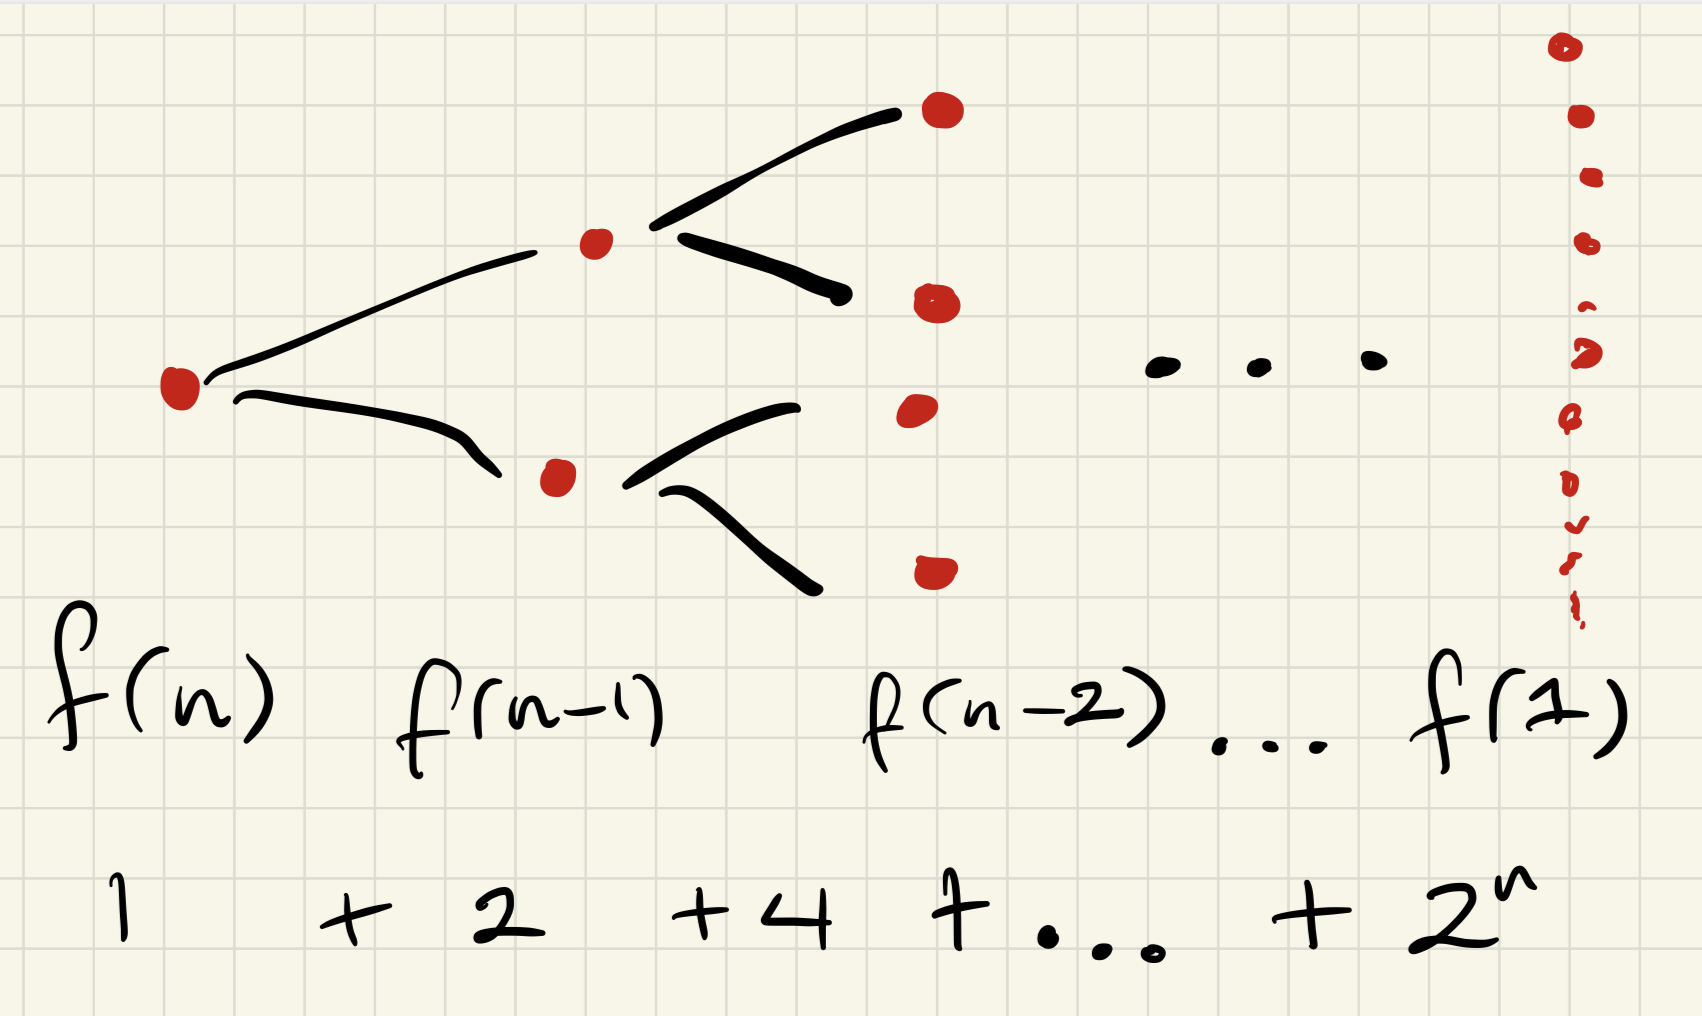 f(n) f(n-1) f(n-2) ... f(1)
1 + 2 + 4 + ... + 2^n